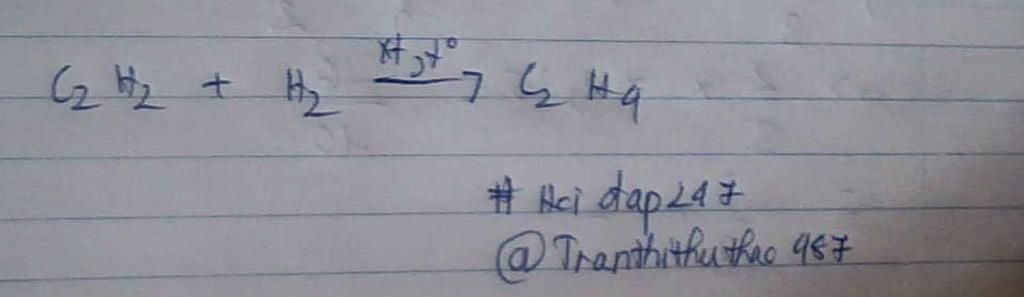 C₂H₂ + H₂ →(xt, t°) C₂H₄
# Hoidap247
@Tranthithuthao 987